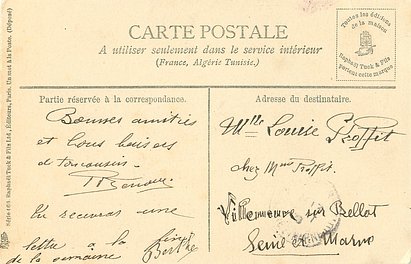 CARTE POSTALE
A utiliser seulement dans le service intérieur
(France, Algérie Tunisie.)
Toutes les éditions
de la maison
Raphael Tuck & Fils
portent cette marque
Série 686. Raphael Tuck & Fils Ltd., Éditeurs, Paris. Un mot à la Poste. (Déposé)
Partie réservée à la correspondance.
Bonnes amitiés
et bons baisers
de tous
Tu recevras une
lettre à la fin
de la semaine Berthe
Adresse du destinataire.
Mlle Louise Proffit
chez Mme Proffit.
Villeneuve sur Bellot
Seine et Marne